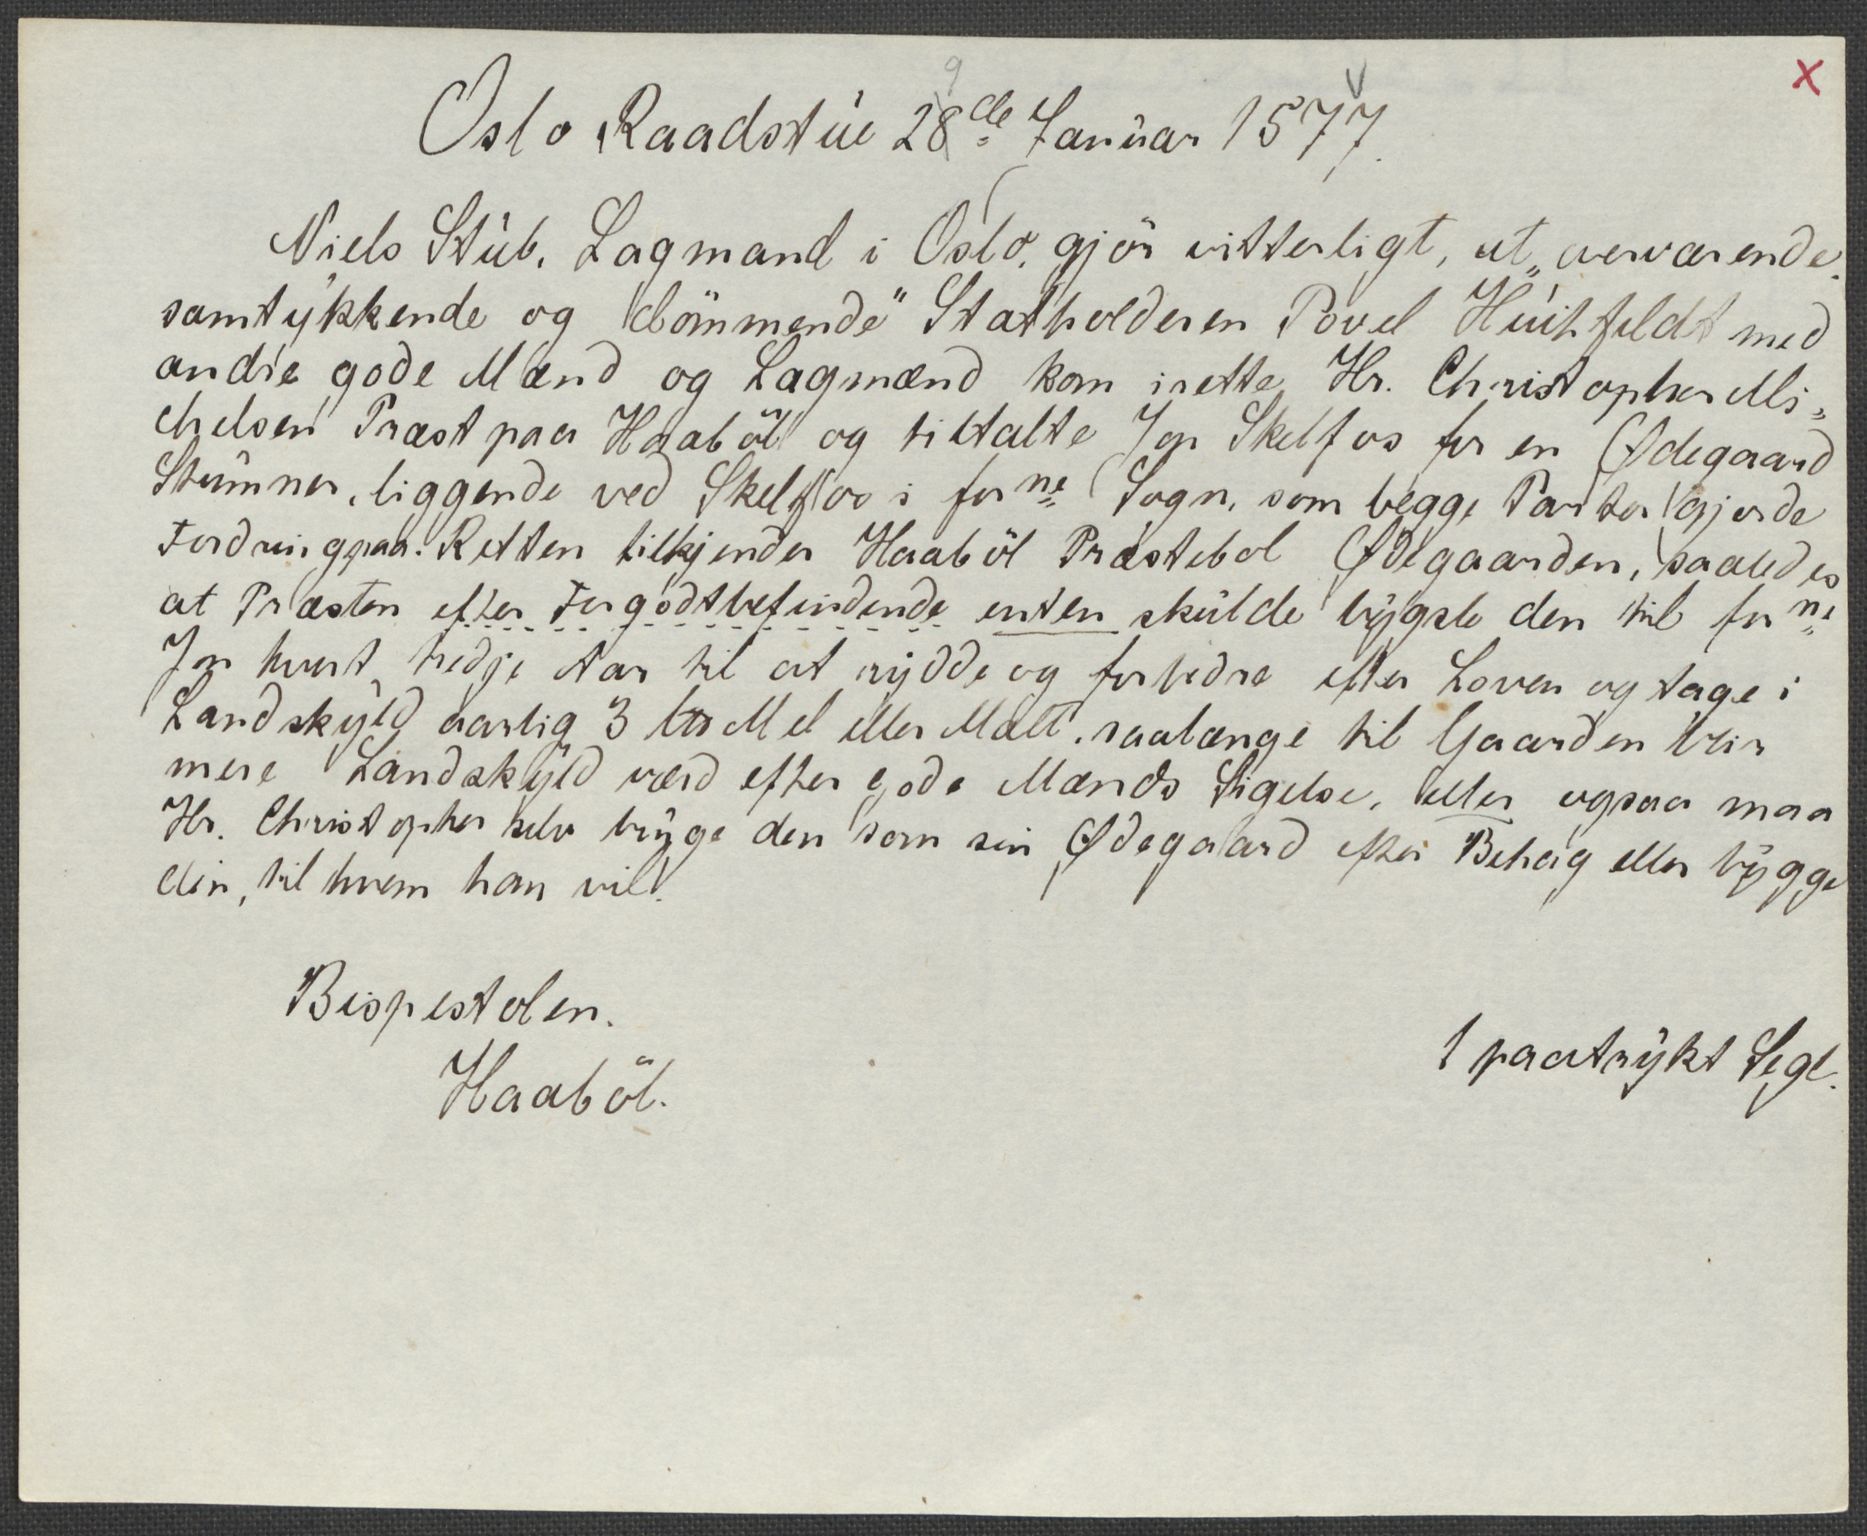 Oslo Raadstue 28de Januar 1577.
9
x
Niels Stub, Lagmand i Oslo, gjör vitterligt, at „overværende,
samtykkende og dömmende" Statholderen Povel Huitfeldt med
andre gode Mænd og Lagmænd kom irette Hr. Christopher Mi-
chelsen Præst paa Haaböl og tiltalte Jon Skelfos for en Ødegaard
Stumner, liggende ved Skelfos i forne Sogn, som begge Parter gjorde
Fordring paa. Retten tilkjender Haaböl Præstebol Ødegaarden, saaledes
at Præsten efter Forgodtbefindende enten skulde bygsle den til forne
Jon hvert tredje Aar til at rydde og forbedre efter Loven og tage i
Landskyld aarlig 3 Mel eller Malt, saalænge til Gaarden blir
mere Landskyld værd efter gode Mænds Sigelse, eller ogsaa maa
Hr. Christopher selv bruge den som sin Ødegaard efter Behag eller bygge
den, til hvem han vil.
Bispestolen.
1 paatrykt Segl.
Haaböl.